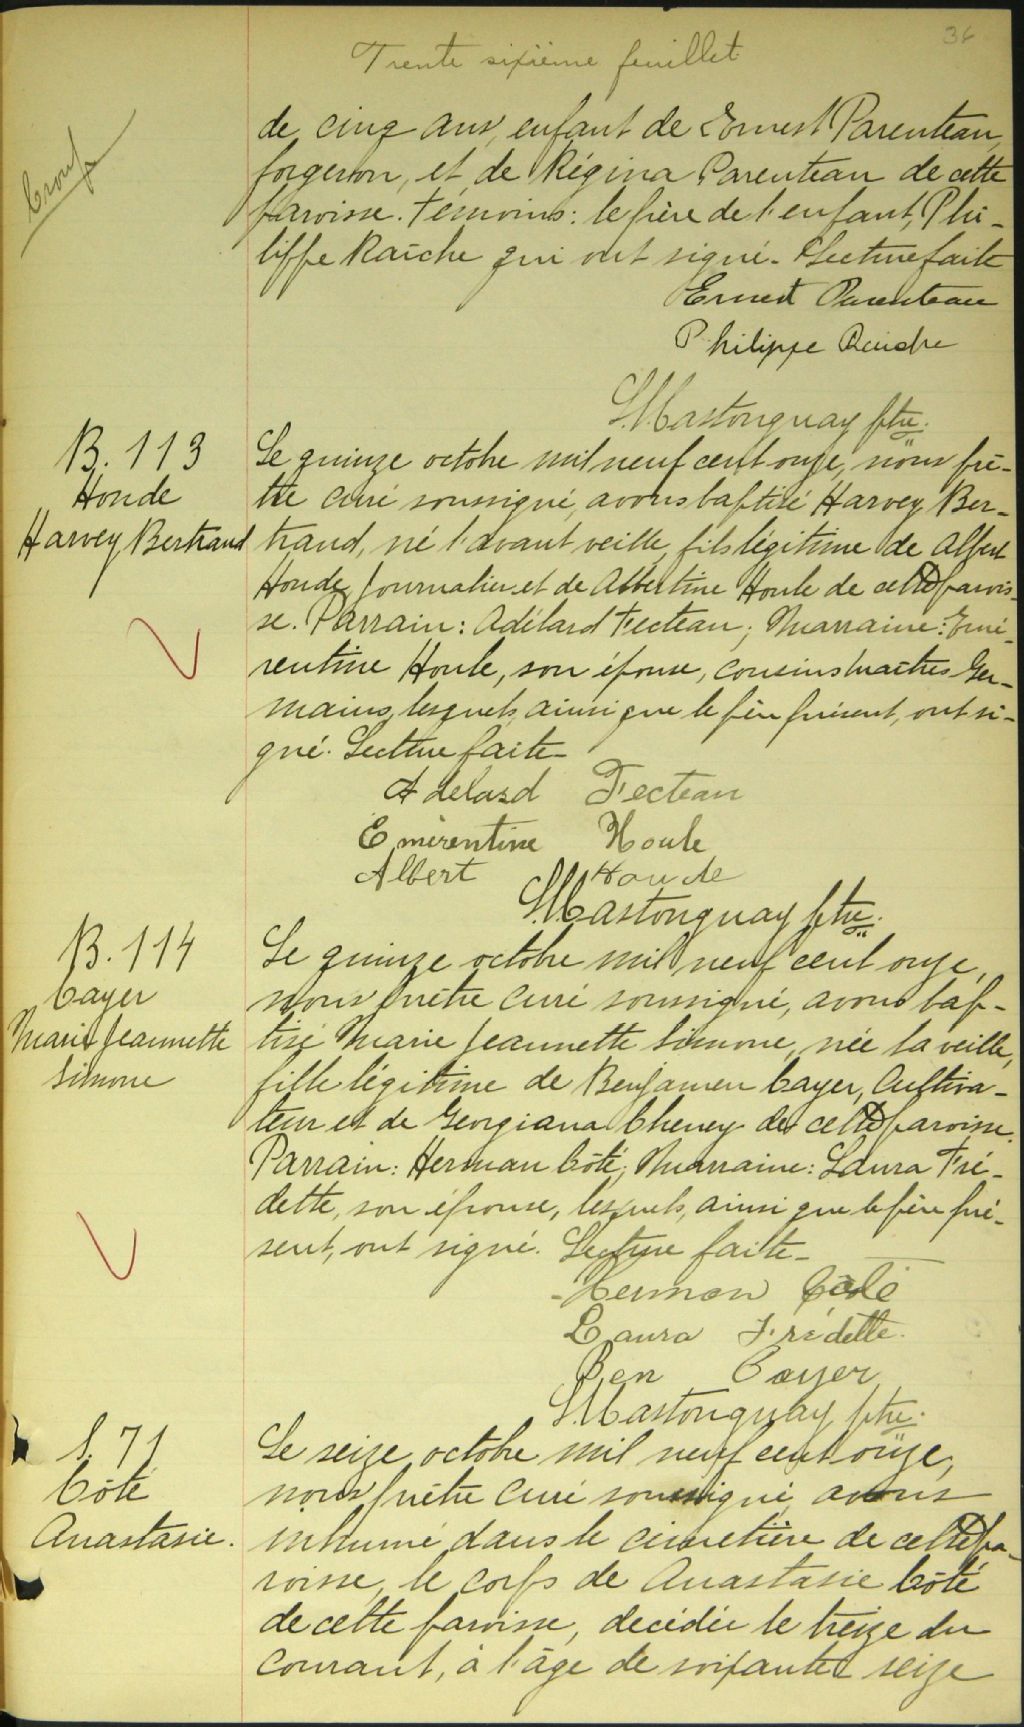 36
Trente sixième feuillet
Croup
de cinq ans, enfant de Ernest Parenteau,
forgeron, et de Régina Parenteau de cette
paroisse. Témoins: le père de l'enfant, Phi-
lippe Raîche qui ont signé. Lecture faite
Ernest Parenteau
Philippe Raiche
S. Mastonguay ptre.
B. 113
Houde
Harvey Bertrand
Le quinze octobre mil neuf cent onze, nous prê-
tre curé soussigné, avons baptisé Harvey Ber-
trand, né l'avant veille, fils légitime de Albert
Houde, journalier et de Albertine Houle de cette parois-
se. Parrain: Adélard Fecteau; Marraine: Emé-
rentine Houle, son épouse, cousins Germains
mains, lesquels, ainsi que le père présent, ont si-
gné. Lecture faite
Adelard Fecteau
Emérentine Houle
Albert Houde
S. Mastonguay ptre.
B. 114
Cayer
Marie Jeannette
Simone
Le quinze octobre mil neuf cent onze,
nous prêtre curé soussigné, avons bap-
tisé Marie Jeannette Simone, née la veille,
fille légitime de Benjamen Cayer, Cultiva-
teur et de Georgiana Cheney de cette paroisse.
Parrain: Herman Côté; Marraine: Laura Fré-
dette, son épouse, lesquels, ainsi que le père pré-
sent, ont signé. Lecture faite
Herman Côté
Laura Frédette.
Ben Cayer
S. Mastonguay ptre.
S. 71
Côté
Anastasie.
Le seize octobre mil neuf cent onze,
nous prêtre curé soussigné avons
inhumé dans le cimetière de cette pa-
roisse, le corps de Anastasie Côté
de cette paroisse, decédée le treize du
courant, à l'âge de soixante seize